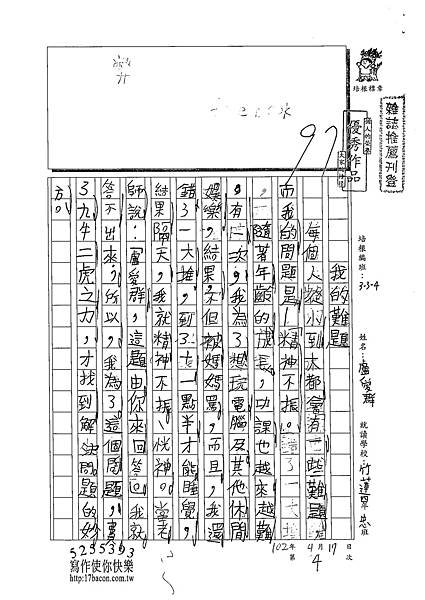 培根標章
雜誌推薦刊登
個人的榮譽
優秀作品
97
培根編班：3-3-4
姓名：盧愛群
就讀學校：竹蓮
102年4月17日
第4次
我的難題
每個人從小到大都會有一些難題
而我的問題是：精神不振
隨著年齡的成長，功課也越來越難
。有一次，我為了想玩電腦及其他休閒
娛樂，結果不但被媽媽罵，而且，我還
錯了一大堆，到了一點半才能睡覺。
結果隔天，我就精神不振、恍神。當老
師說：「盧愛群，這題由你來回答。」我就
答不出來，所以，我為了這個問題，費
了九牛二虎之力，才找到解決問題的妙
方。
5255393
寫作使你快樂
http://17bacon.com.tw/